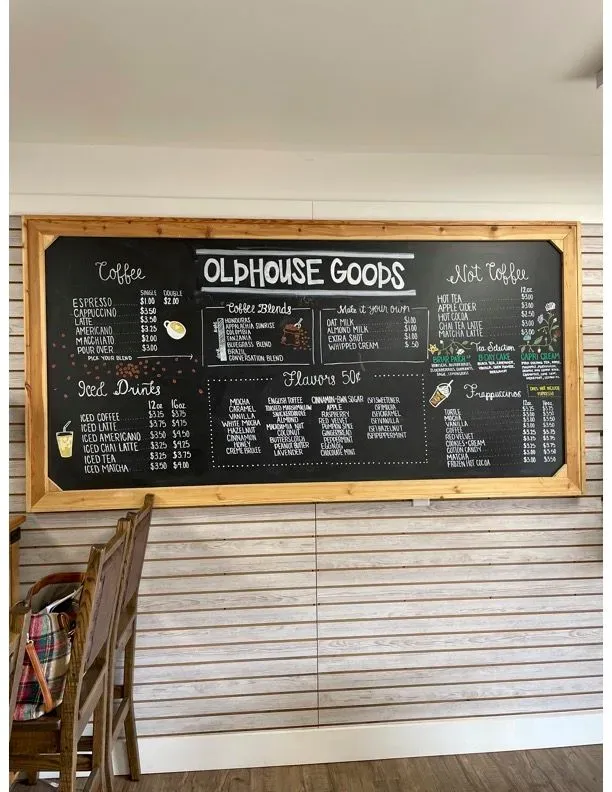 OLDHOUSE GOODS
Coffee
SINGLE DOUBLE
ESPRESSO $1.00 $2.00
CAPPUCCINO $3.50
LATTE $3.50
AMERICANO $3.25
MACCHIATO $2.00
POUR OVER $3.00
PICK YOUR BLEND
Iced Drinks
12oz 16oz
ICED COFFEE $3.25 $3.75
ICED LATTE $3.75 $4.25
ICED AMERICANO $3.50 $4.25
ICED CHAI LATTE $3.25
ICED TEA $3.25 $3.75
ICED MATCHA $3.50 $4.00
Coffee Blends
HONDURAS
APPALACHIA SUNRISE
COLOMBIA
TANZANIA
BLUEGRASS BLEND
BRAZIL
CONVERSATION BLEND
Make it your own
OAT MILK $1.00
ALMOND MILK $1.00
EXTRA SHOT $1.00
WHIPPED CREAM $.50
Flavors 50¢
MOCHA
CARAMEL
VANILLA
WHITE MOCHA
HAZELNUT
CINNAMON
HONEY
CREME BRULEE
ENGLISH TOFFEE
TOASTED MARSHMALLOW
SNICKERDOODLE
ALMOND
MACADAMIA NUT
COCONUT
BUTTERSCOTCH
PEANUT BUTTER
LAVENDER
CINNAMON
APPLE
RASPBERRY
RED VELVET
PUMPKIN SPICE
GINGERBREAD
PEPPERMINT
EGGNOG
CHOCOLATE MINT
(SF)SWEETENER
(SF)MOCHA
(SF)CARAMEL
(SF)VANILLA
(SF)HAZELNUT
(SF)PEPPERMINT
Not Coffee
12oz
HOT TEA $3.00
APPLE CIDER $3.00
HOT COCOA
CHAI TEA LATTE
MATCHA LATTE
Tea Selection
BRIAR PATCH
B-DAY CAKE
CAPRI CREAM
DOES NOT INCLUDE
ESPRESSO
Frappuccinos
12oz 16oz
TURTLE
MOCHA
VANILLA
COFFEE
RED VELVET
COOKIES-CREAM
COTTON CANDY
MATCHA
FROZEN HOT COCOA